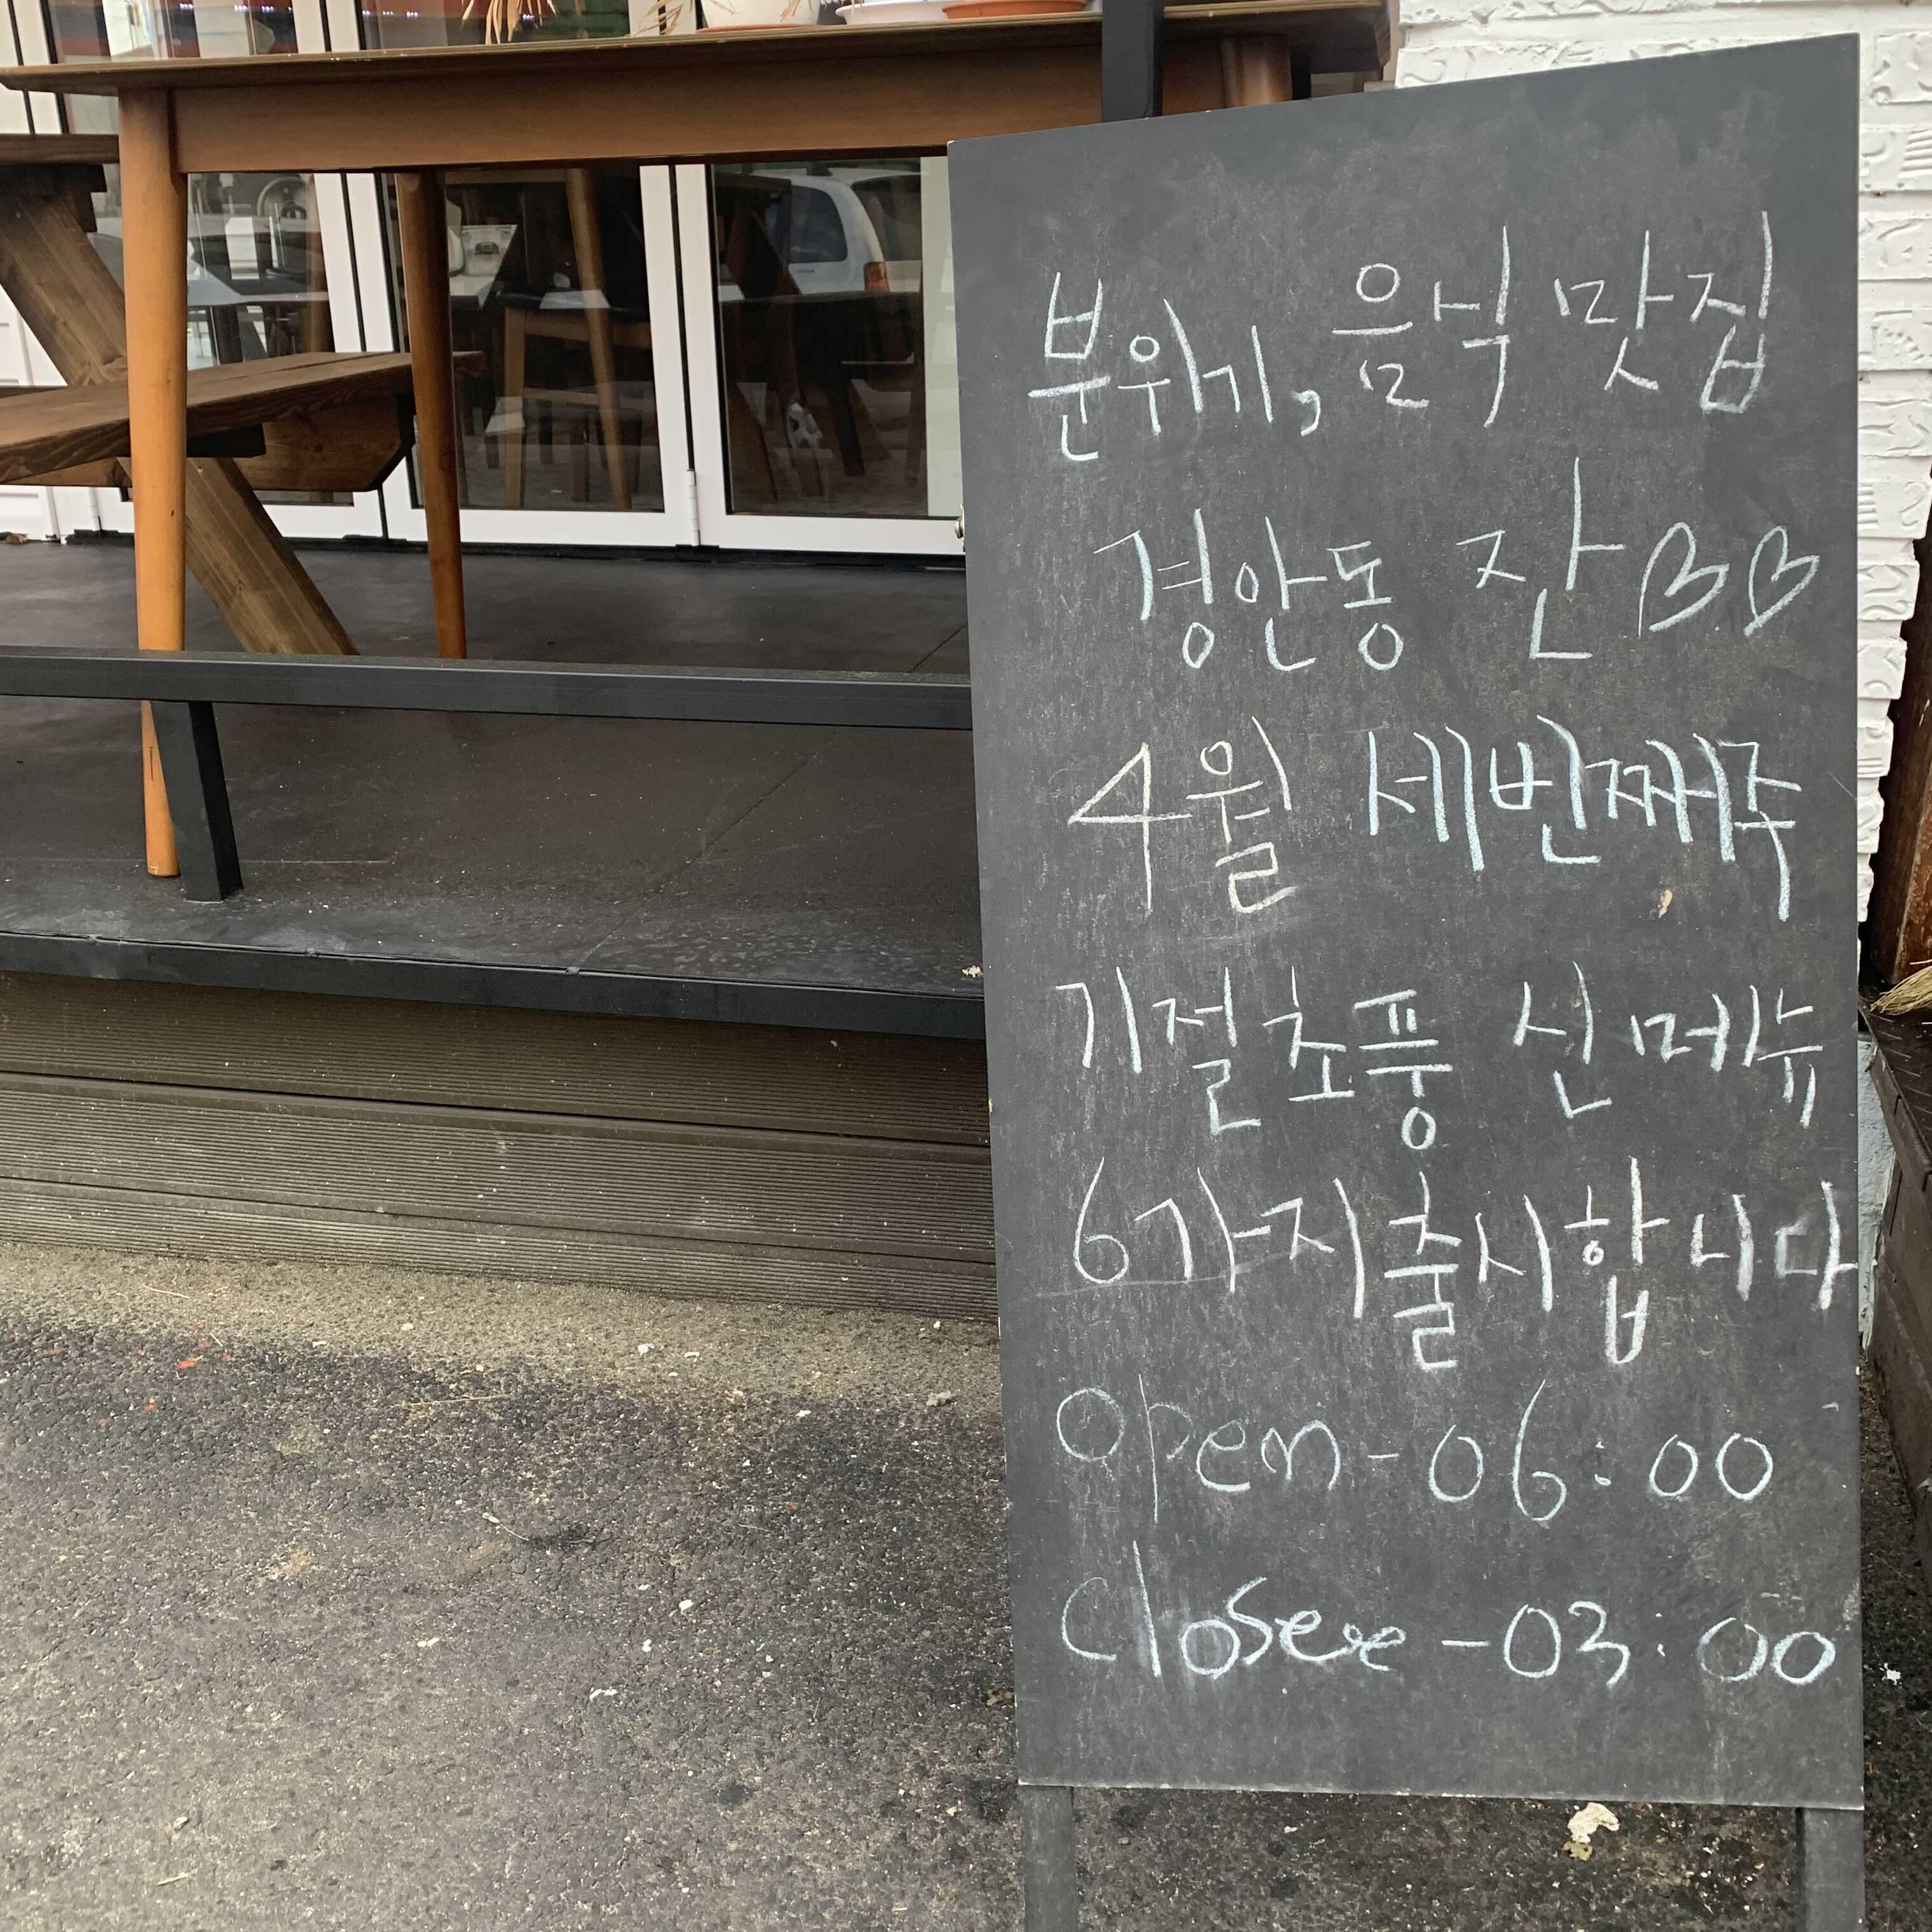 분위기, 음식 맛집
경안동 잔♡♡
4월 세번째주
기절초풍 신메뉴
6가지출시합니다
open-06:00
closeee-03:00